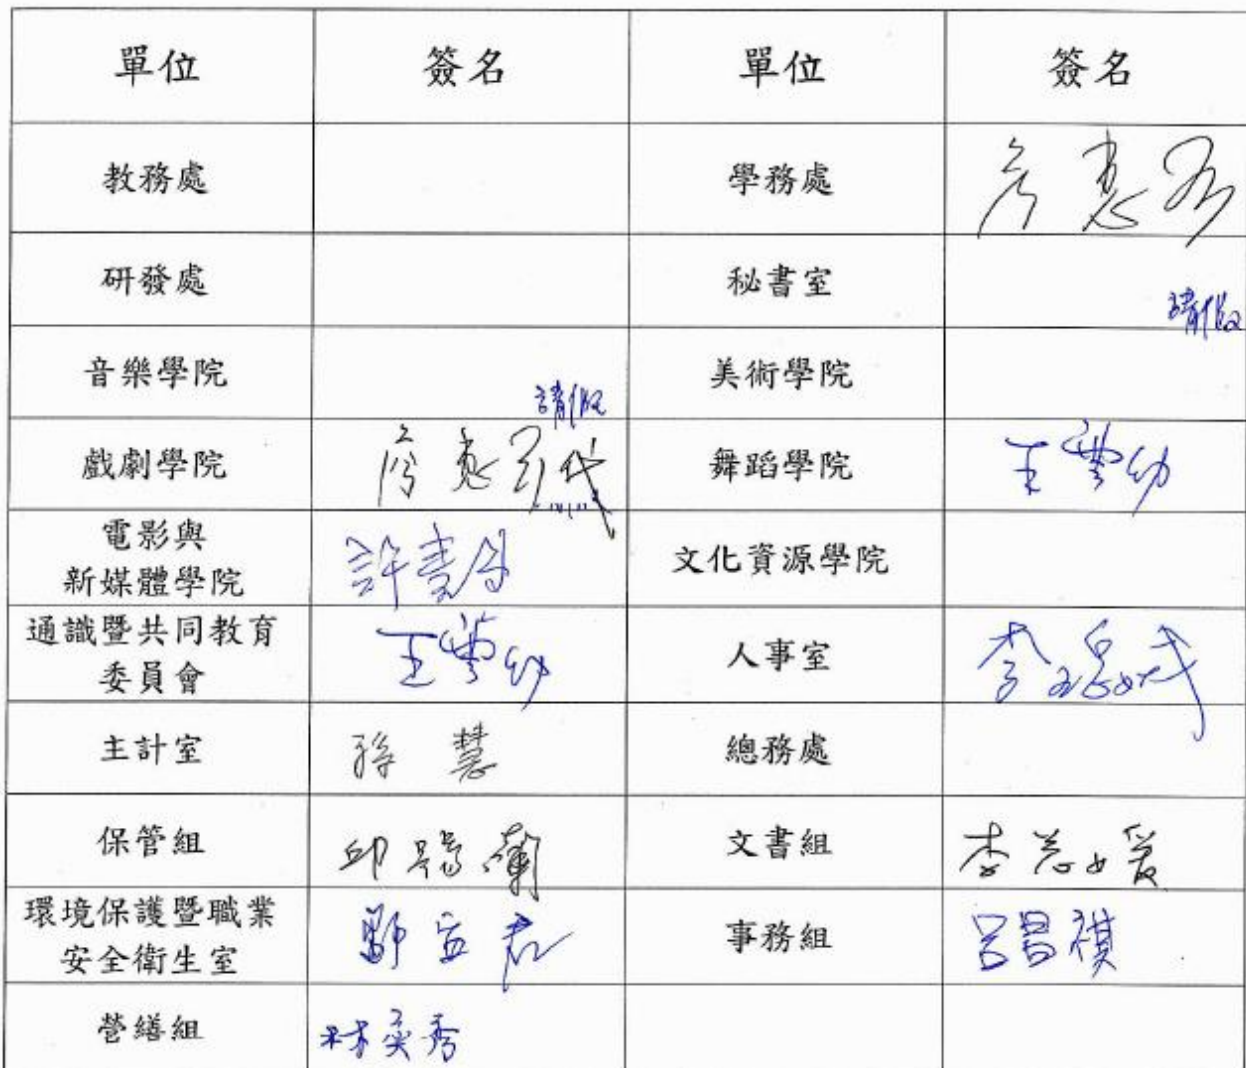 單位 簽名 單位 簽名
教務處 學務處
研發處 秘書室 請假
音樂學院 請假 美術學院
戲劇學院 代 舞蹈學院 王雲幼
電影與
新媒體學院 許
文化資源學院
通識暨共同教育
委員會
王雲幼 人事室 李
主計室 孫 慧 總務處
保管組 邱 蘭 文書組 李 媛
環境保護暨職業
安全衛生室
君 事務組 呂昌祺
營繕組 林奕秀